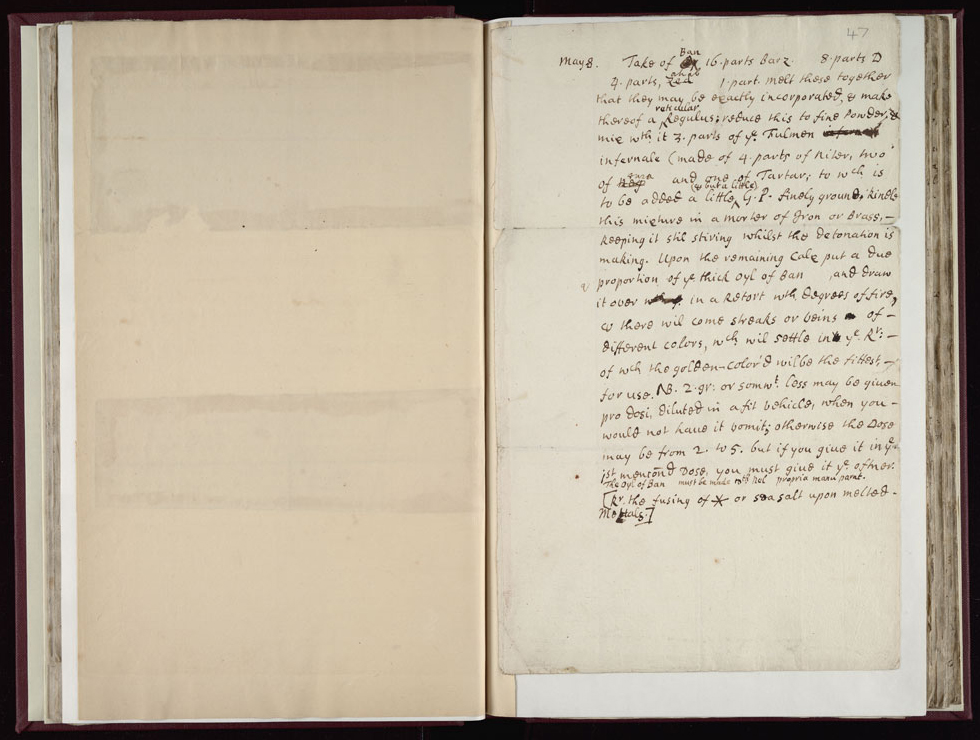 47
May 8. Take of Ban 16. parts Barz. 8. parts D
4. parts, 1. part. melt these together
that they may be exactly incorporated, & make
thereof a reticular Regulus; reduce this to fine Powder, &
mix wth. it 3. parts of ye. Fulmen
infernale (made of 4. parts of Niter, two
of and one of Tartar; to wch is
to be added a little (& but a little) G. P. finely ground, kindle
this mixture in a morter of Iron or Brass, –
keeping it stil stiring whilst the detonation is
making. Upon the remaining Calx put a due
proportion of ye thick oyl of Ban , and draw
it over in a Retort wth. degrees of fire,
& there wil come streaks or veins of –
different colors, wch wil settle in ye. Rr: –
of wch the golden-color'd wilbe the fittest, –
for use. NB. 2. gr: or somwt. less may be given
pro dosi, diluted in a fit vehicle, when you –
would not have it vomit; otherwise the Dose
may be from 2. to 5. but if you give it in ye
1st mencon̄d Dose, you must give it ye. oftner.
The Oyl of Ban must be made propria manu parat.
[Rr. the fusing of ✶ or sea salt upon melted –
Mettals.]